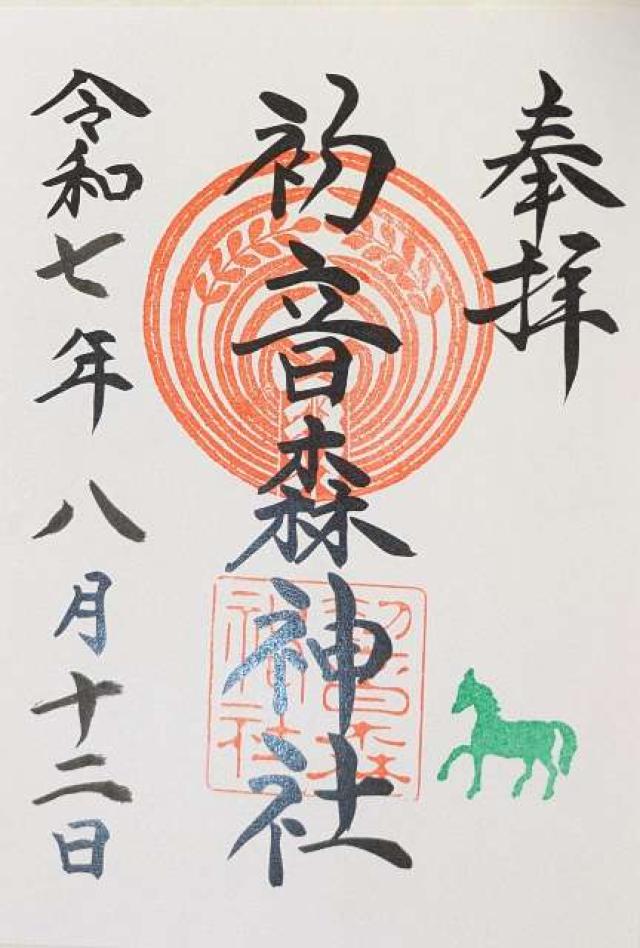 奉拝
初音森神社
初音森
神社
令和七年八月十二日